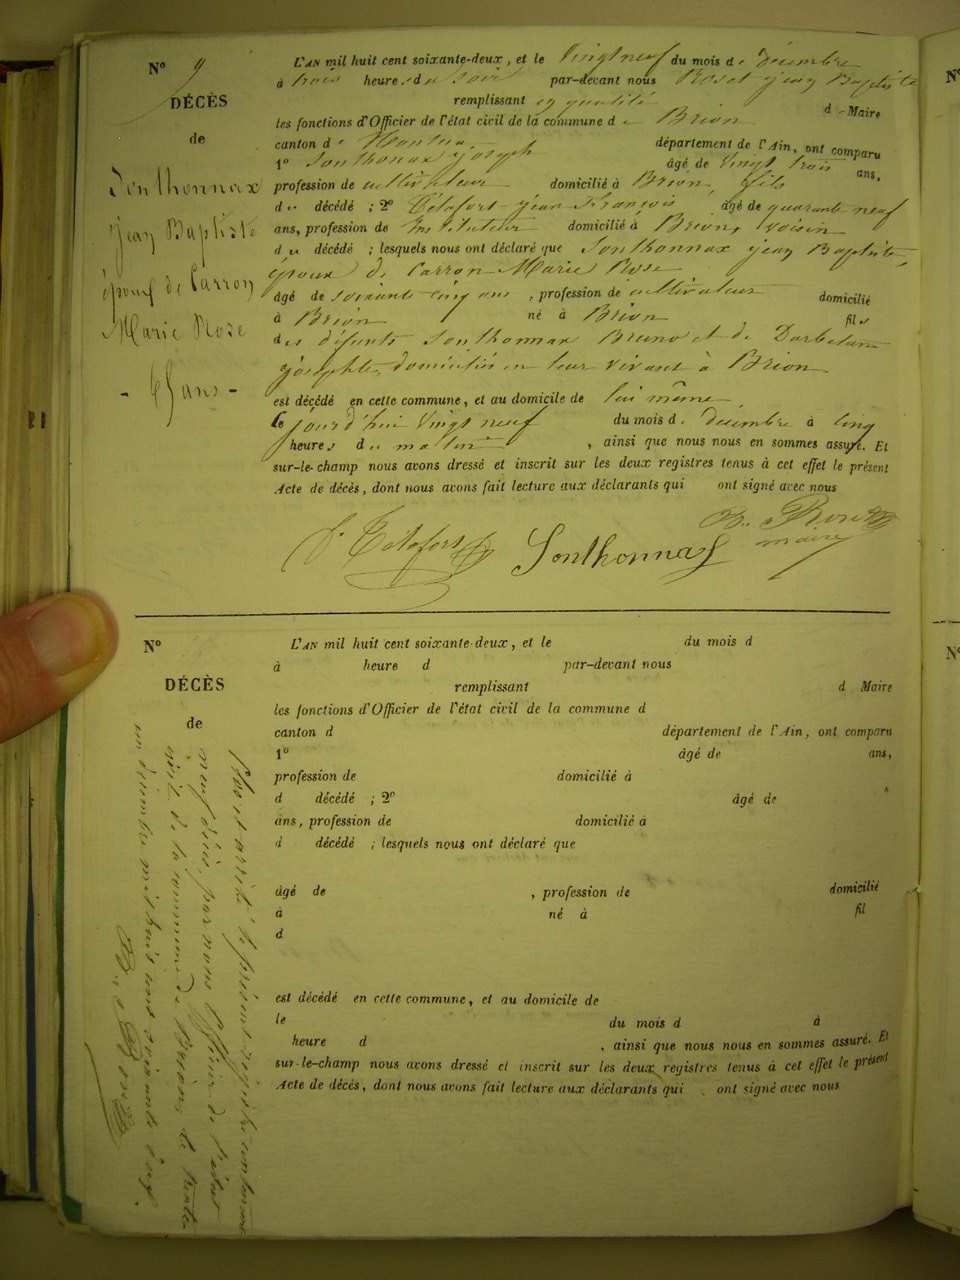 N° 9
DÉCÈS
de
Sonthonnax
Jean Baptiste
époux de Carron
Marie Rose
- 65 ans -
L'AN mil huit cent soixante-deux, et le Vingt neuf du mois de décembre
à trois heures du soir par-devant nous Roset Jean Baptiste
remplissant en qualité de Maire
les fonctions d'Officier de l'état civil de la commune de Brion
canton de Nantua département de l'Ain, ont comparu
1° Sonthonnax Joseph âgé de vingt trois ans,
profession de cultivateur domicilié à Brion, fils
du décédé ; 2° Tétafort Jean François âgé de quarante neuf
ans, profession de Instituteur domicilié à Brion, voisin
du décédé ; lesquels nous ont déclaré que Sonthonnax Jean Baptiste,
époux de Carron Marie Rose
âgé de soixante cinq ans , profession de cultivateur domicilié
à Brion né à Brion fils
des défunts Sonthonnax Bruno et de
Josephte, domiciliés en leur vivant à Brion
est décédé en cette commune, et au domicile de lui même
le jourd'hui Vingt neuf du mois de décembre à cinq
heures du matin , ainsi que nous nous en sommes assuré. Et
sur-le-champ nous avons dressé et inscrit sur les deux registres tenus à cet effet le présent
Acte de décès, dont nous avons fait lecture aux déclarants qui ont signé avec nous
Tétafort Sonthonnax Roset
maire
N°
DÉCÈS
de
L'AN mil huit cent soixante-deux, et le du mois d
à heure d par-devant nous
remplissant d Maire
les fonctions d'Officier de l'état civil de la commune d
canton d département de l'Ain, ont comparu
1° âgé de ans,
profession de domicilié à
d décédé ; 2° âgé de
ans, profession de domicilié à
d décédé ; lesquels nous ont déclaré que
âgé de , profession de domicilié
à né à fil
d
est décédé en cette commune, et au domicile de
le du mois d à
heure d , ainsi que nous nous en sommes assuré. Et
sur-le-champ nous avons dressé et inscrit sur les deux registres tenus à cet effet le présent
Acte de décès, dont nous avons fait lecture aux déclarants qui ont signé avec nous
Clos et arrêté le présent registre contenant
neuf décès, par nous Officier de l'état
civil de la commune de Brion, le trente
un décembre mil huit cent soixante deux.
Roset
N°
N°